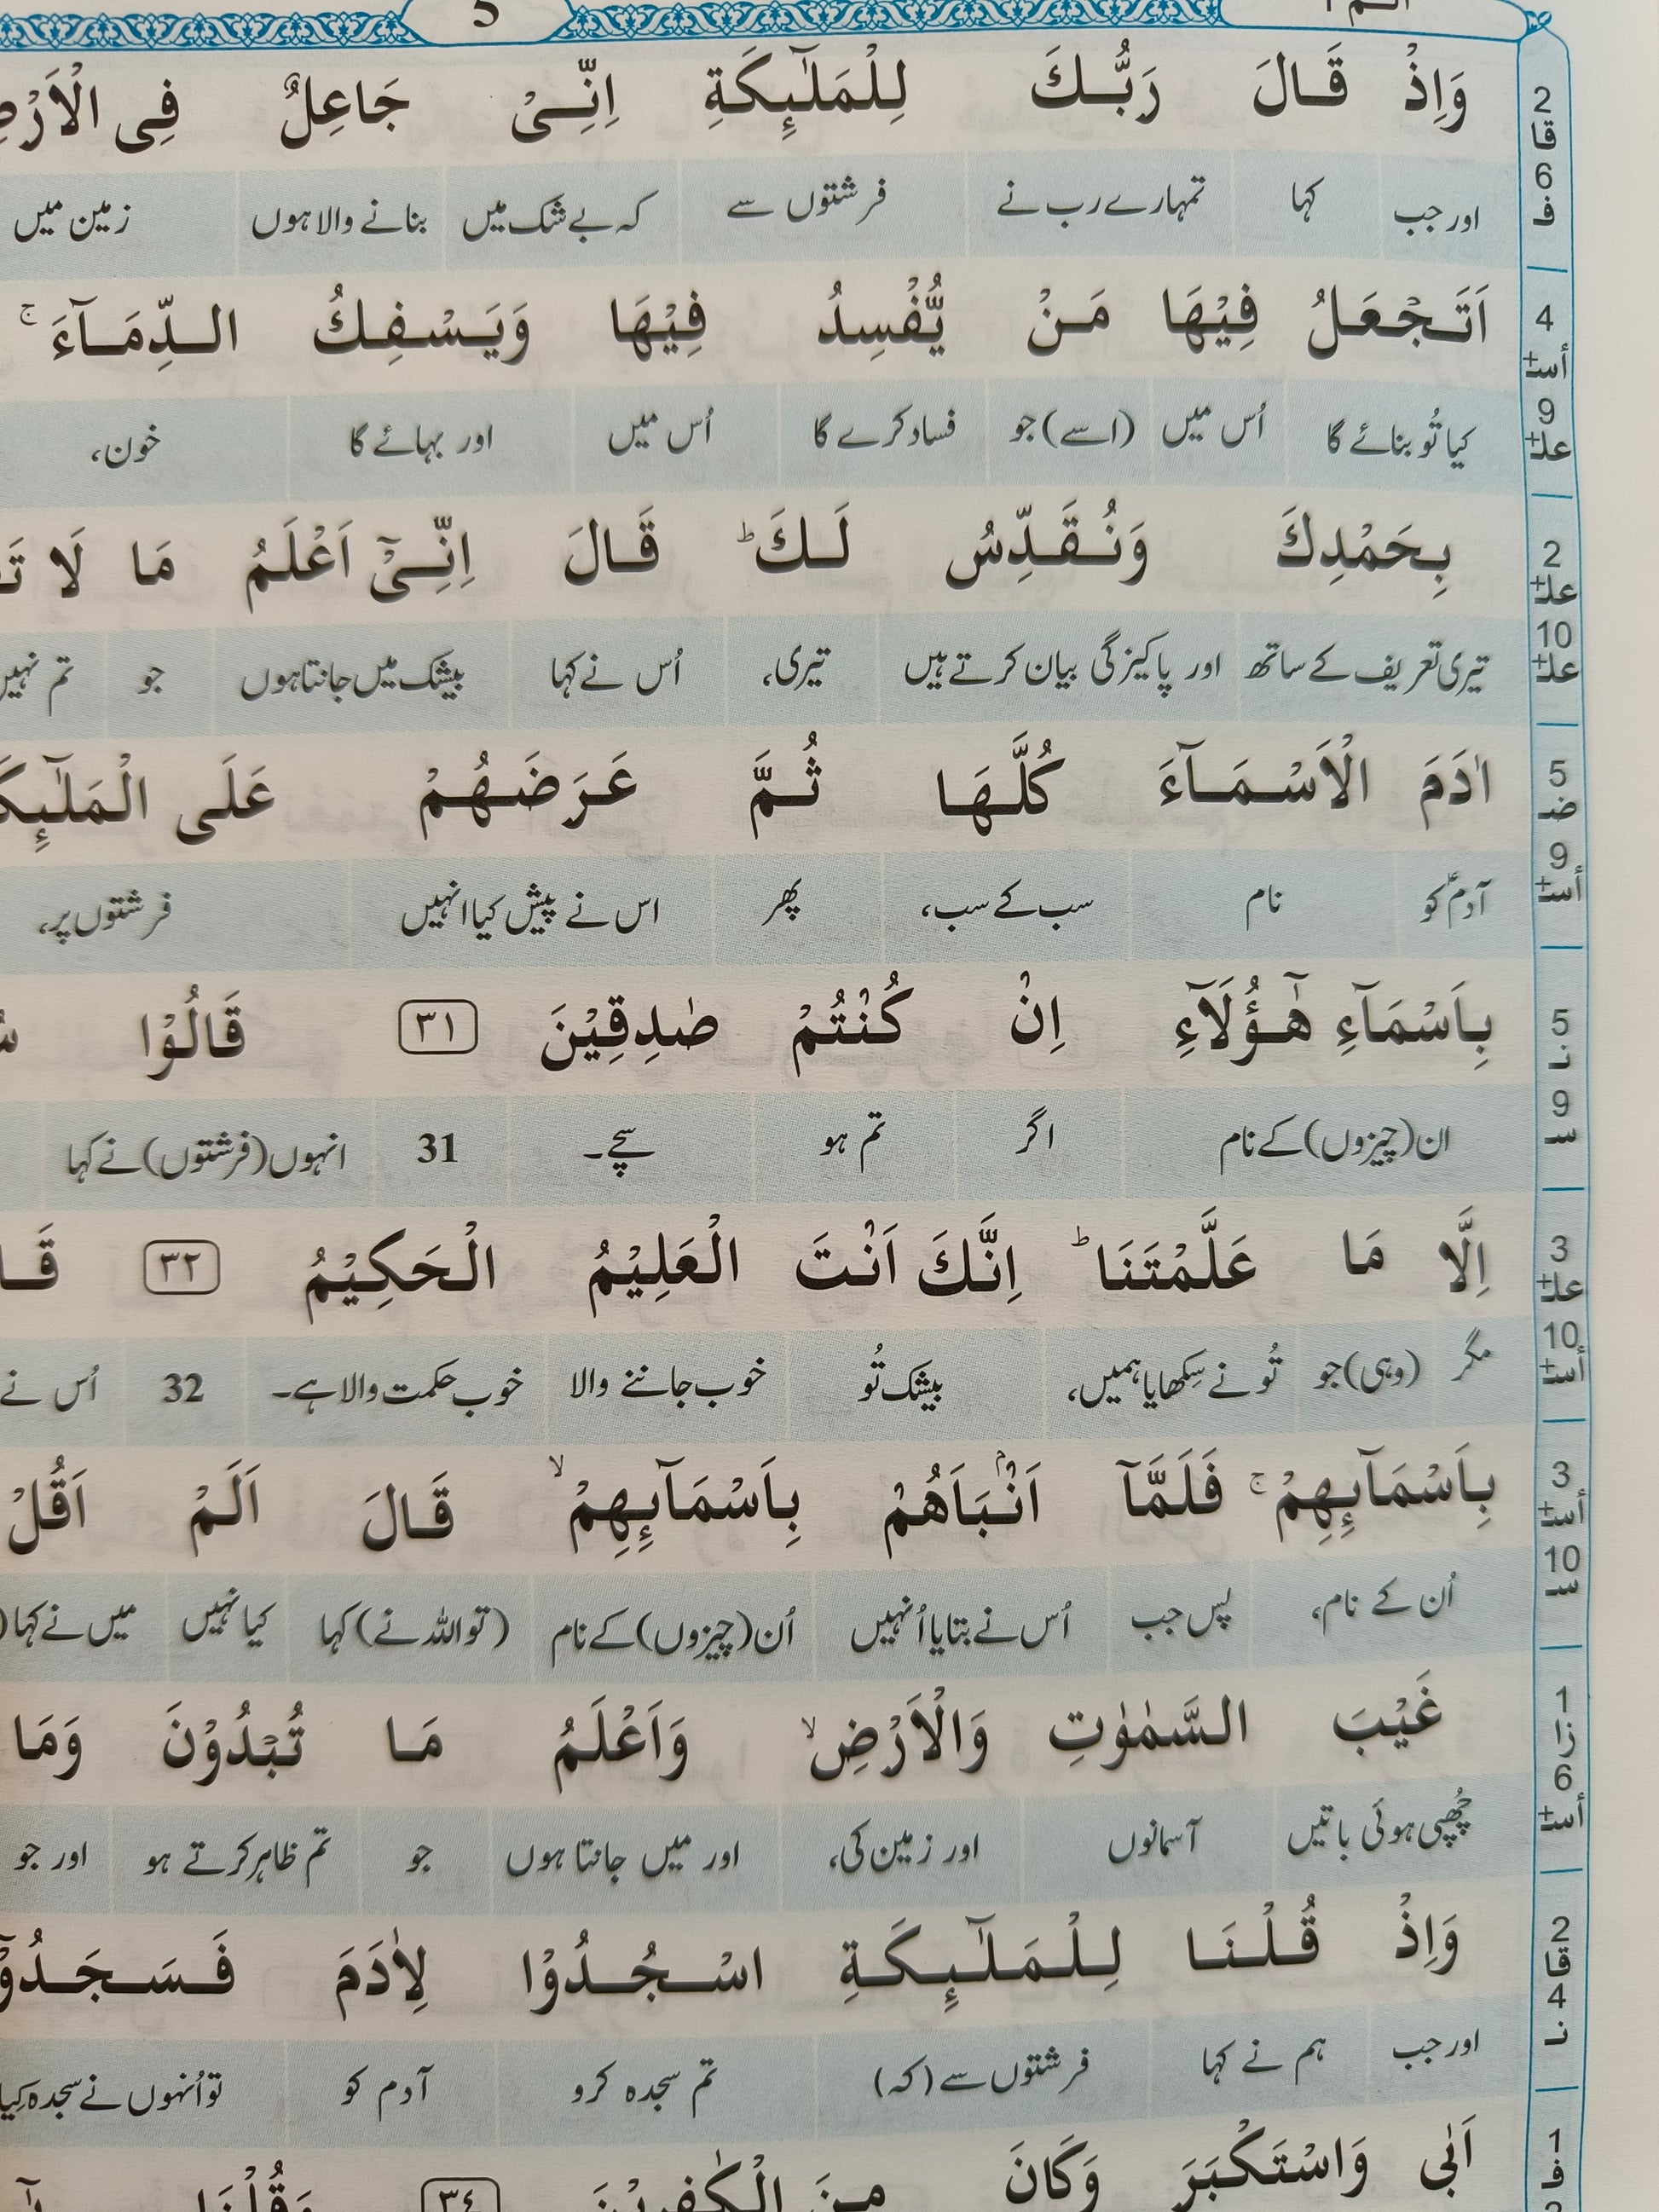 5
وَاِذْ قَالَ رَبُّكَ لِلْمَلٰٓئِكَةِ اِنِّيْ جَاعِلٌ فِي
2 قا 6 ف
اور جب کہا تمہارے رب نے فرشتوں سے کہ بے شک میں بنانے والا ہوں زمین میں
اَتَجْعَلُ فِيْهَا مَنْ يُّفْسِدُ فِيْهَا وَيَسْفِكُ الدِّمَآءَ ۚ
4 أسـ+ 9 علـ+
کیا تُو بنائے گا اُس میں (اسے) جو فساد کرے گا اُس میں اور بہائے گا خون،
بِحَمْدِكَ وَنُقَدِّسُ لَكَ ؕ قَالَ اِنِّيْٓ اَعْلَمُ مَا لَا
2 علـ+ 10 علـ+
تیری تعریف کے ساتھ اور پاکیزگی بیان کرتے ہیں تیری، اُس نے کہا بیشک میں جانتا ہوں جو تم نہیں
اٰدَمَ الْاَسْمَآءَ كُلَّهَا ثُمَّ عَرَضَهُمْ عَلَى
5 ضـ 9 أسـ+
آدمؑ کو نام سب کے سب، پھر اس نے پیش کیا انہیں فرشتوں پر،
بِاَسْمَآءِ هٰٓؤُلَآءِ اِنْ كُنْتُمْ صٰدِقِيْنَ ٣١ قَالُوْا
5 نـ 9 سـ
ان (چیزوں) کے نام اگر تم ہو سچے۔ 31 انہوں (فرشتوں) نے کہا
اِلَّا مَا عَلَّمْتَنَا ؕ اِنَّكَ اَنْتَ الْعَلِيْمُ الْحَكِيْمُ ٣٢
3 علـ+ 10 أسـ+
مگر (وہی) جو تُو نے سکھایا ہمیں، بیشک تُو خوب جاننے والا خوب حکمت والا ہے۔ 32 اُس نے
بِاَسْمَآئِهِمْ ۚ فَلَمَّآ اَنْۢبَاَهُمْ بِاَسْمَآئِهِمْ ۙ قَالَ اَلَمْ اَقُلْ
3 أسـ+ 10 سـ
اُن کے نام، پس جب اُس نے بتایا اُنہیں اُن (چیزوں) کے نام (تو اللہ نے) کہا کیا نہیں میں نے کہا
غَيْبَ السَّمٰوٰتِ وَالْاَرْضِ ۙ وَاَعْلَمُ مَا تُبْدُوْنَ وَمَا
1 زا 6 أسـ+
چُھپی ہوئی باتیں آسمانوں اور زمین کی، اور میں جانتا ہوں جو تم ظاہر کرتے ہو اور جو
وَاِذْ قُلْنَا لِلْمَلٰٓئِكَةِ اسْجُدُوْا لِاٰدَمَ فَسَجَدُوْٓا
2 قا 4 نـ
اور جب ہم نے کہا فرشتوں سے (کہ) تم سجدہ کرو آدم کو تو اُنہوں نے سجدہ کیا
اَبٰى وَاسْتَكْبَرَ وَكَانَ مِنَ الْكٰفِرِيْنَ ٣٤ وَقُلْنَا
1 ف